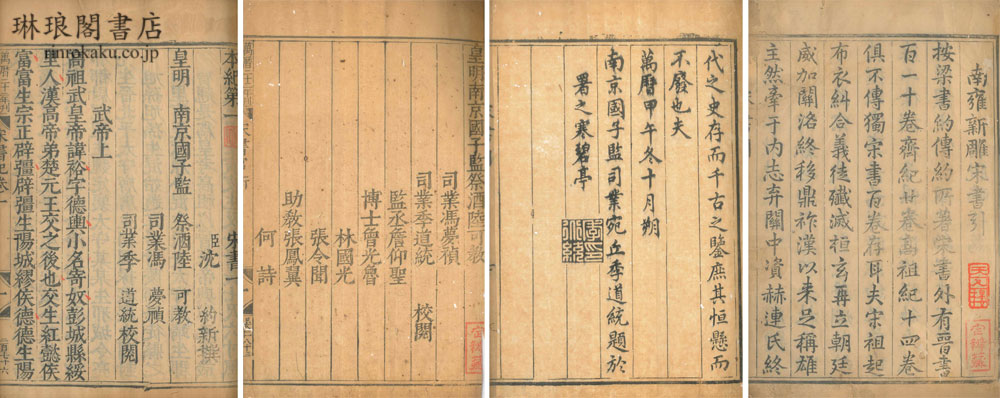 琳琅閣書店
rinrokaku.co.jp
南雍新雕宋書引
按梁書約傳約所著宋書外有晉書
百一十卷齊紀廿卷高祖紀十四卷
俱不傳獨宋書百卷存耳夫宋祖起
布衣糾合義徒殱滅桓玄再立朝廷
威加關洛終移鼎祚漢以来足稱雄
主然牽于内志弃關中資赫連氏終
代之史存而千古之鑒庶其恒懸而
不廢也夫
萬曆甲午冬十月朔
南京國子監司業宛丘季道統題於
署之寒碧亭
皇明南京國子監祭酒陸可教
司業馮夢禎
司業季道統 校閱
監丞詹仰聖
博士曾光魯
林國光
張令聞
助教張鳳翼
何詩
本紀第一 宋書一
臣沈 約新撰
皇明 南京國子監 祭酒陸 可教
司業馮 夢禎
司業季 道統校閱
武帝上
高祖武皇帝諱裕字德輿小名寄奴彭城縣綏
里人漢高帝弟楚元王交之後也交生紅懿侯
富富生宗正辟彊辟彊生陽城繆侯德德生陽